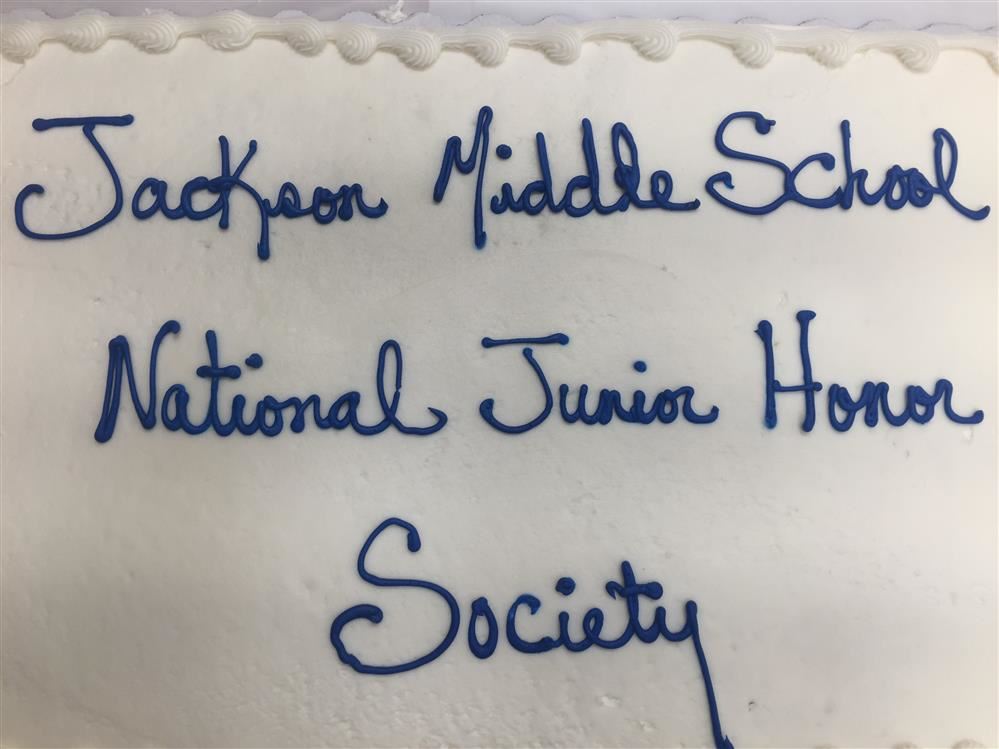 Jackson Middle School
National Junior Honor
Society